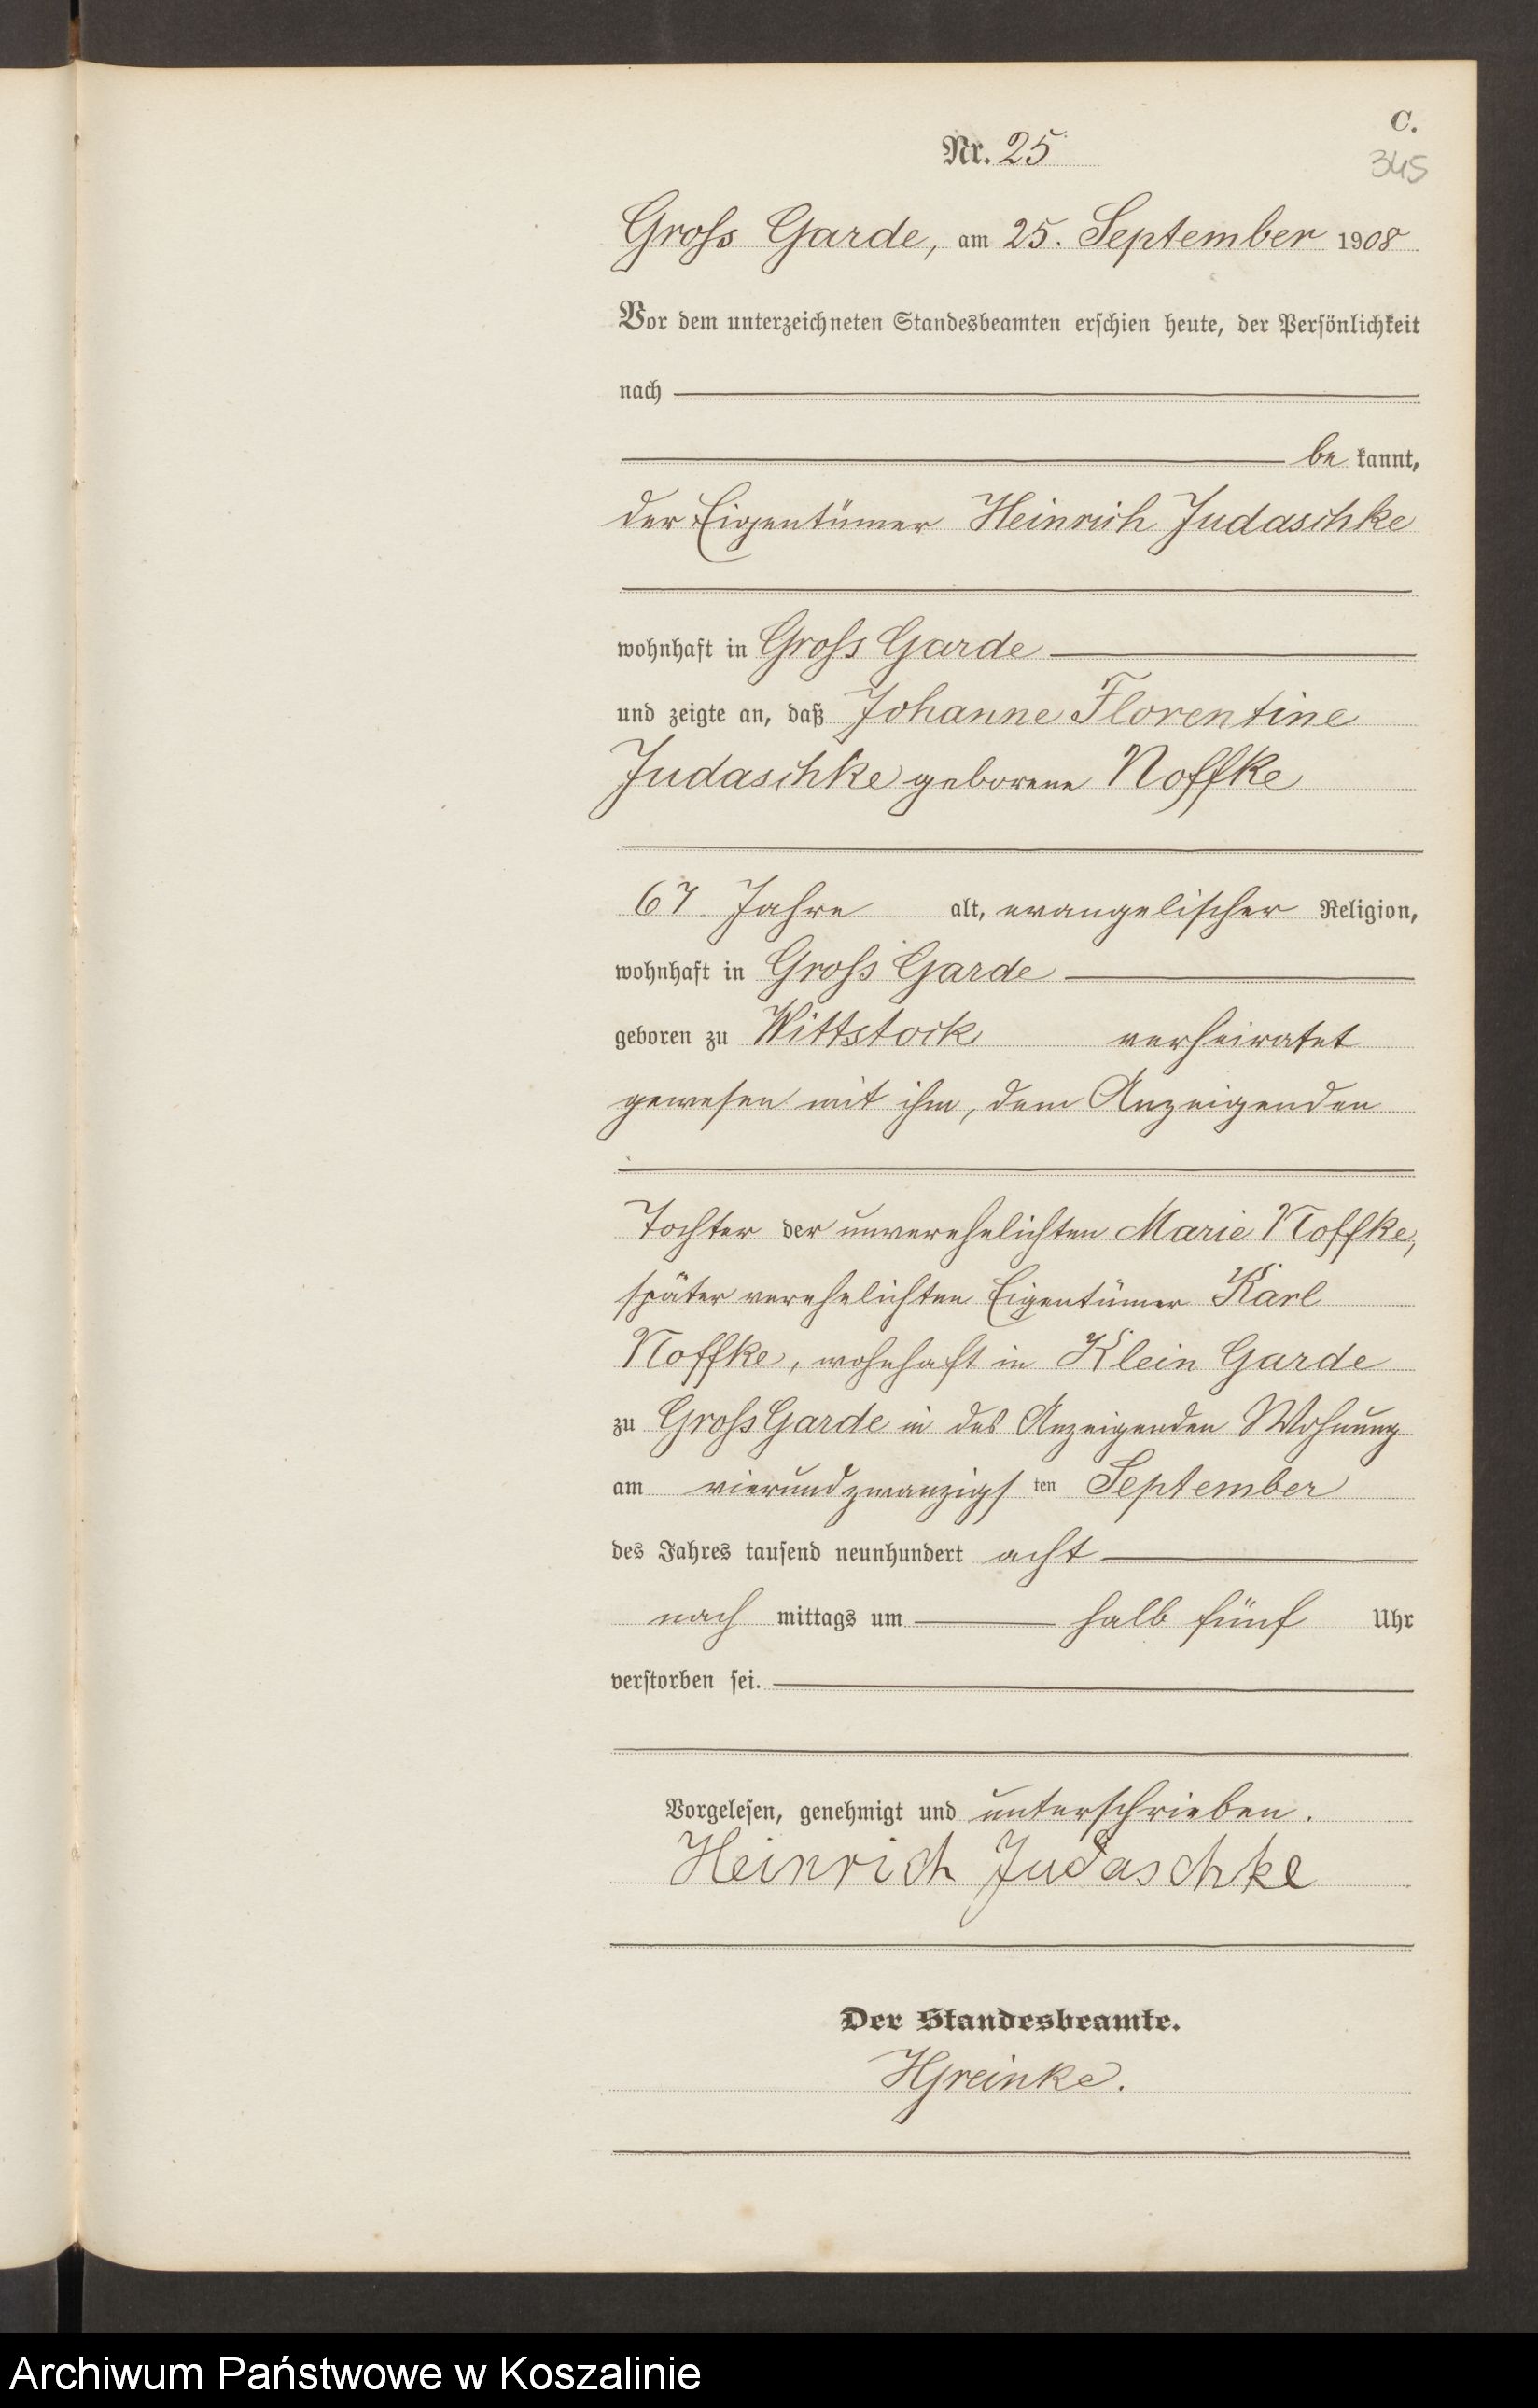 C.
Nr. 25
345
Gross Garde, am 25. September 1908
Vor dem unterzeichneten Standesbeamten erschien heute, der Persönlichkeit
nach
be kannt,
der Eigentümer Heinrich Judaschke
wohnhaft in Gross Garde
und zeigte an, daß Johanne Florentine
Judaschke geborene Noffke
67 Jahre alt, evangelischer Religion,
wohnhaft in Gross Garde
geboren zu Wittstock verheiratet
gewesen mit ihm, dem Anzeigenden
Tochter der unverehelichten Marie Noffke,
später verehelichten Eigentümer Karl
Noffke, wohnhaft in Klein Garde
zu Gross Garde in des Anzeigenden Wohnung
am vierundzwanzigs ten September
des Jahres tausend neunhundert acht
nach mittags um halb fünf Uhr
verstorben sei.
Vorgelesen, genehmigt und unterschrieben.
Heinrich Judaschke
Der Standesbeamte.
HGreinke.
Archiwum Państwowe w Koszalinie